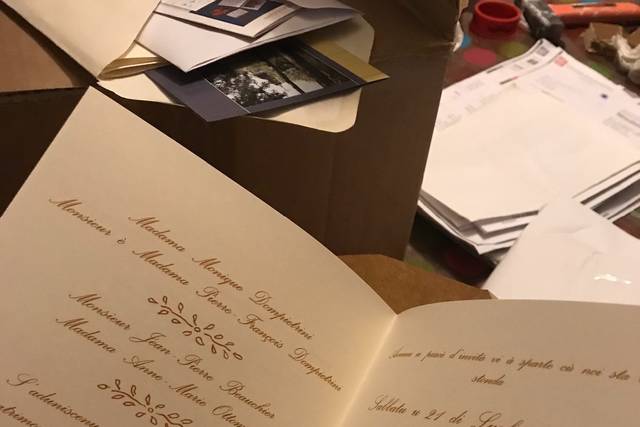 Madama Monique Dompietrini
Monsieur è Madama Pierre-François Dompietrini
Monsieur Jean-Pierre Beauchier
Madama Anne-Marie
S'aduniscenu
Anu u pacè d'invità vi à sparte cù noi sta
stonda
Sabbatu u 21 di